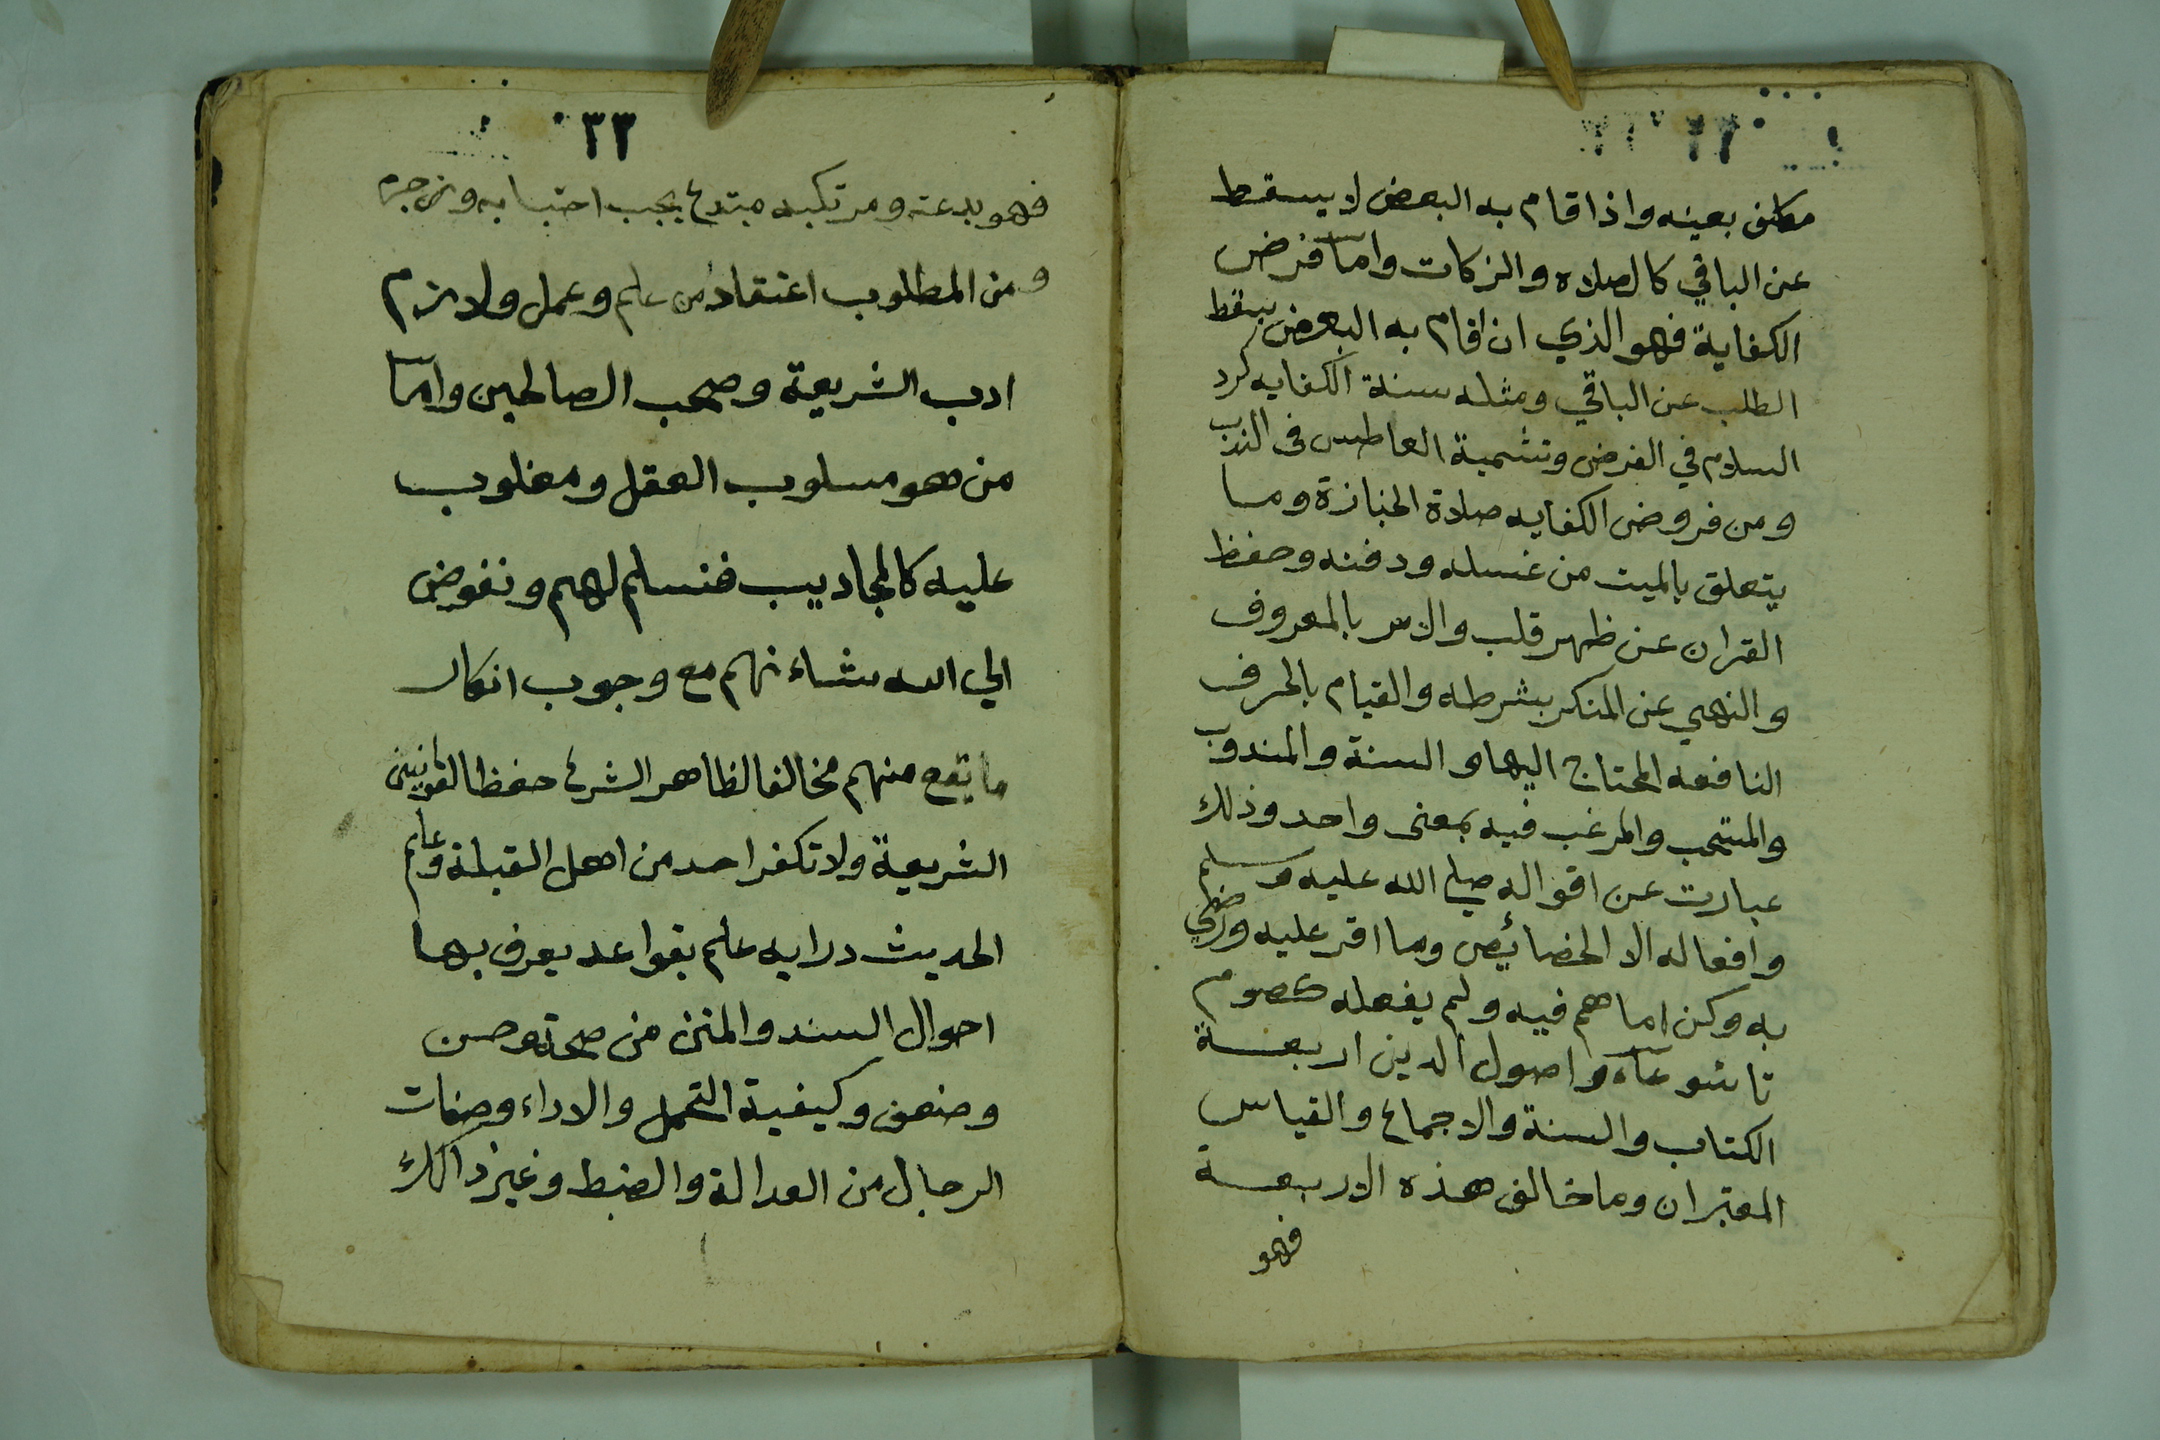 مكلف بعينه واذا قام به البعض لا يسقط
عن الباقي كالصلاه والزكات واما فرض
الكفاية فهو الذي ان اقام به البعض يسقط
الطلب عن الباقي ومثله سنة الكفايه كرد
السلام في الفرض وتشمية العاطس في الندب
ومن فروض الكفايه صلاة الجنازة وما
يتعلق بالميت من غسله ودفنه وحفظ
القران عن ظهر قلب والامر بالمعروف
والنهي عن المنكر بشرطه والقيام بالحرف
النافعه المحتاج اليها والسنة والمندوب
والمستحب والمرغب فيه بمعنى واحد وذلك
عبارت عن اقواله صلي الله عليه وسلم
وافعاله الا الخصائيص وما اقر عليه ورضي
به وكن اما هم فيه ولم يفعله كصوم
تاسوعاء واصول الدين اربعة
الكتاب والسنة والاجماع والقياس
المعتبران وما خالف هذه الاربعة
فهو
٣٣
فهو بدعته ومرتكبه مبتدع يجب اجتنابه وزجره
ومن المطلوب اعتقاد من علم وعمل ولازم
ادب الشريعة وصحب الصالحين واما
من هو مسلوب العقل ومغلوب
عليه كالمجاديب فنسلم لهم ونفوض
الي الله شاءنهم مع وجوب انكار
ما يقع منهم مخالفا لظاهر الشرع حفظا لقوانين
الشريعة ولا تكفر احد من اهل القبلة وعلم
الحديث درايه علم بقواعد يعرف بها
احوال السند والمتن من صحة وحسن
وضعف وكيفية التحمل والاداء وصفات
الرجال من العدالة والضبط وغير ذالك